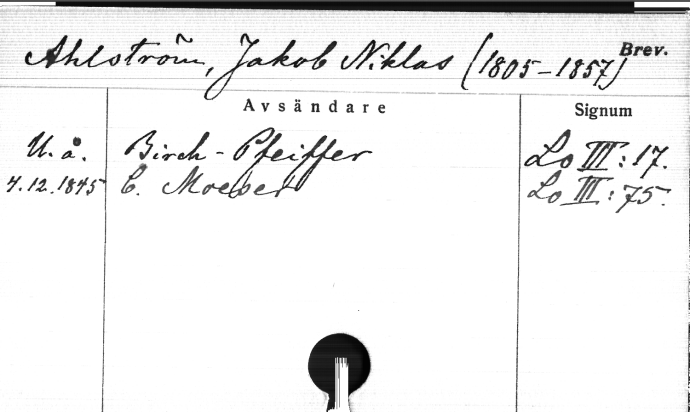 Ahlström, Jakob Niklas (1805-1857) Brev.
Avsändare Signum
U. å. Birch-Pfeiffer Lo III: 17.
4.12.1845 C. Moeser Lo III: 75.